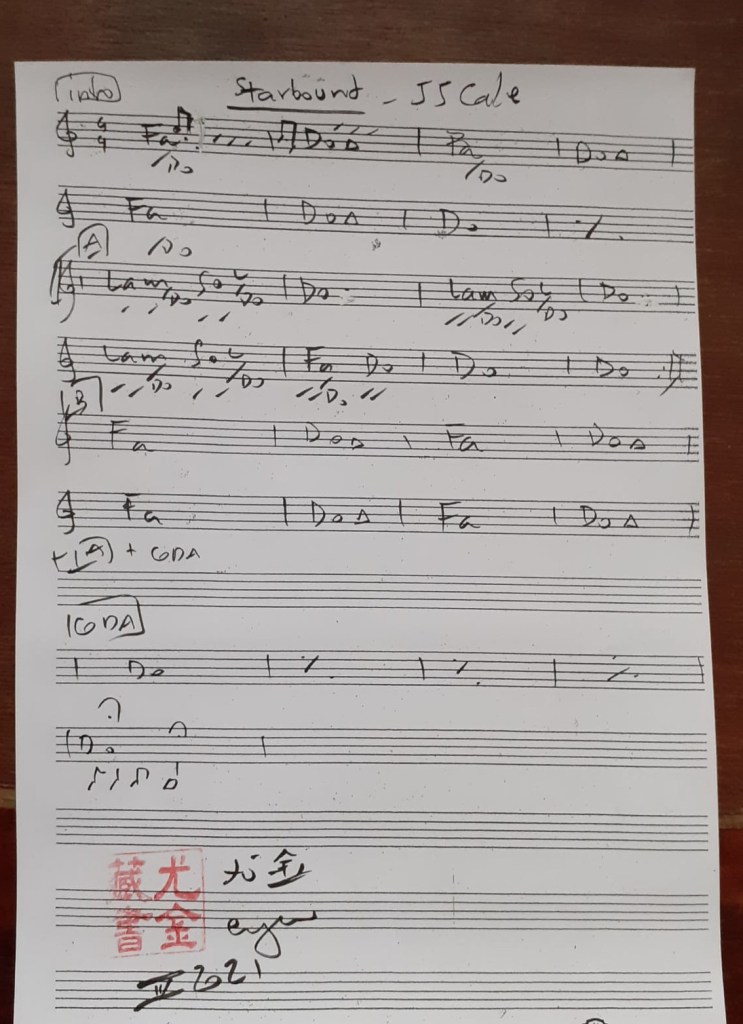 intro Starbound - JJ Cale
4/4 Fa/Do | Do△ | Fa/Do | Do△ |
Fa/Do | Do△ | Do | ٪
A
Lam/Do Sol/Do | Do | Lam/Do Sol/Do | Do |
Lam/Do Sol/Do | Fa/Do Do | Do | Do :||
B
Fa | Do△ | Fa | Do△ |
Fa | Do△ | Fa | Do△ |
+ A + CODA
CODA
| Do | ٪ | ٪ | ٪ |
| Do |
尤金
藏書
尤金
III 2021